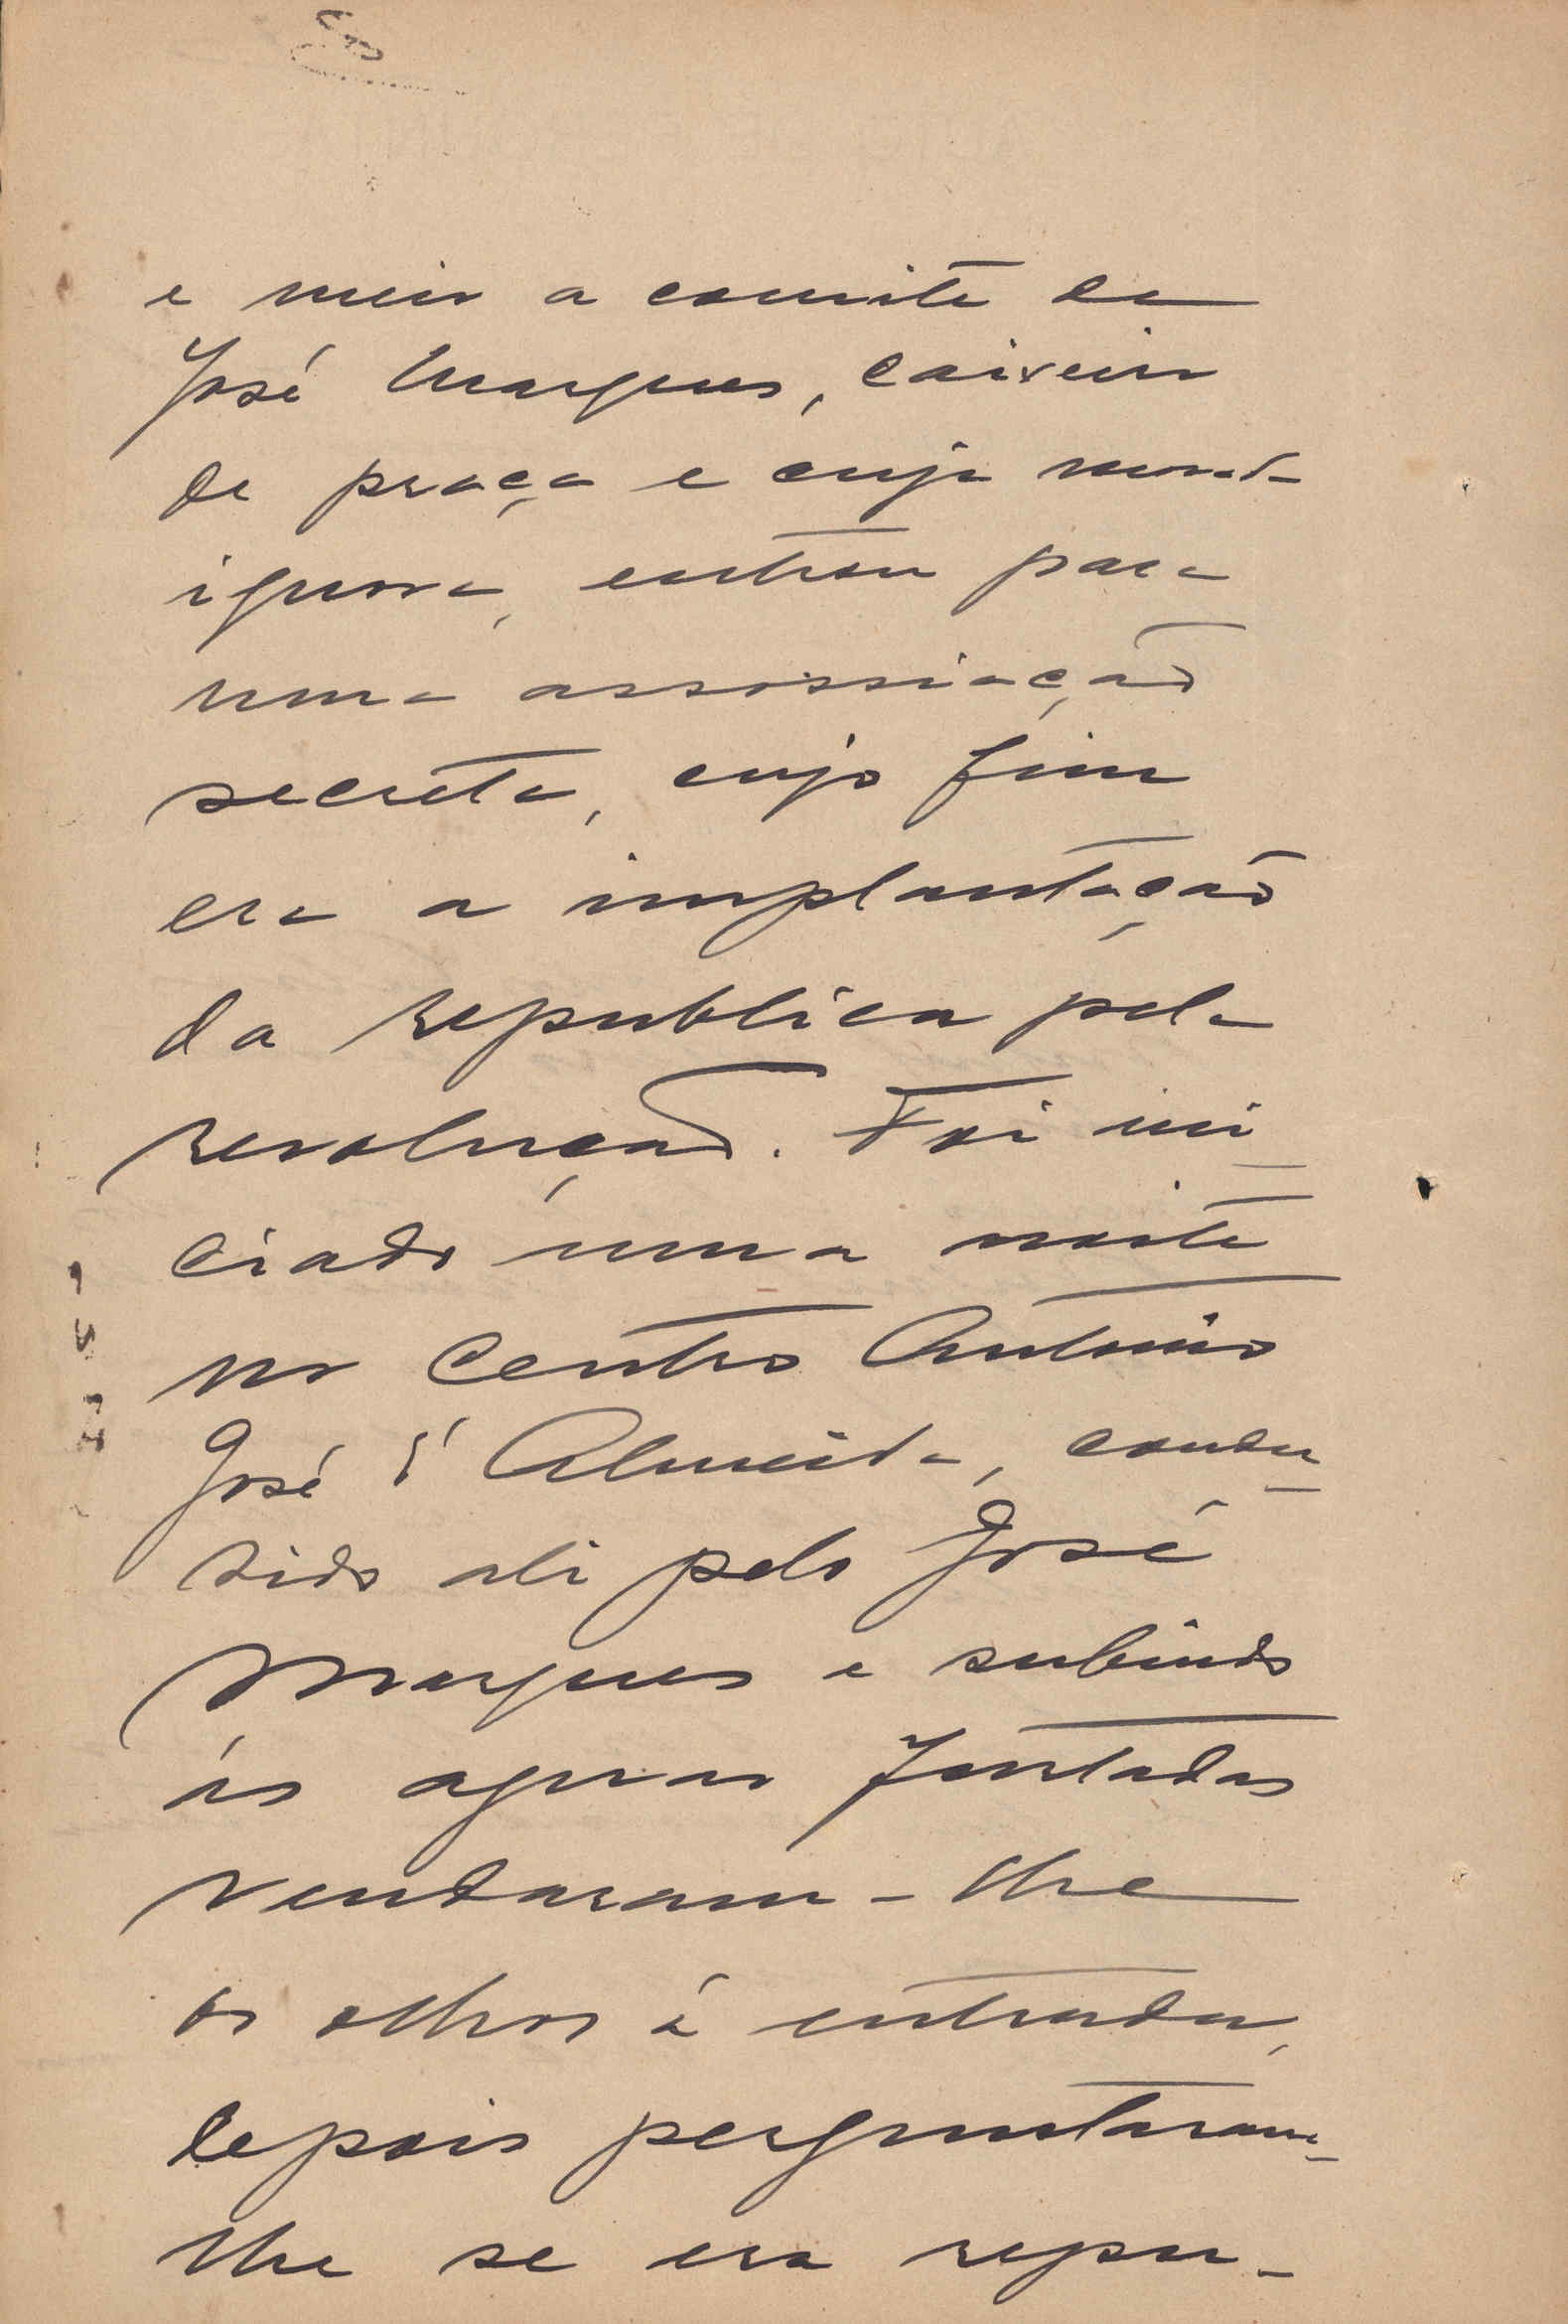 e meio a convite de
José Marques, caixeiro
de praça e cuja morada
ignora, entrou para
uma assossiação
secreta, cujo fim
era a implantação
da republica pela
revolução. Foi ini
ciado numa noite
no Centro Antonio
José d'Almeida, condu
sido ali pelo José
Marques e subindo
ás aguas furtadas
vendaram-lhe
os olhos á entrada,
depois perguntaram-
lhe se era repu-